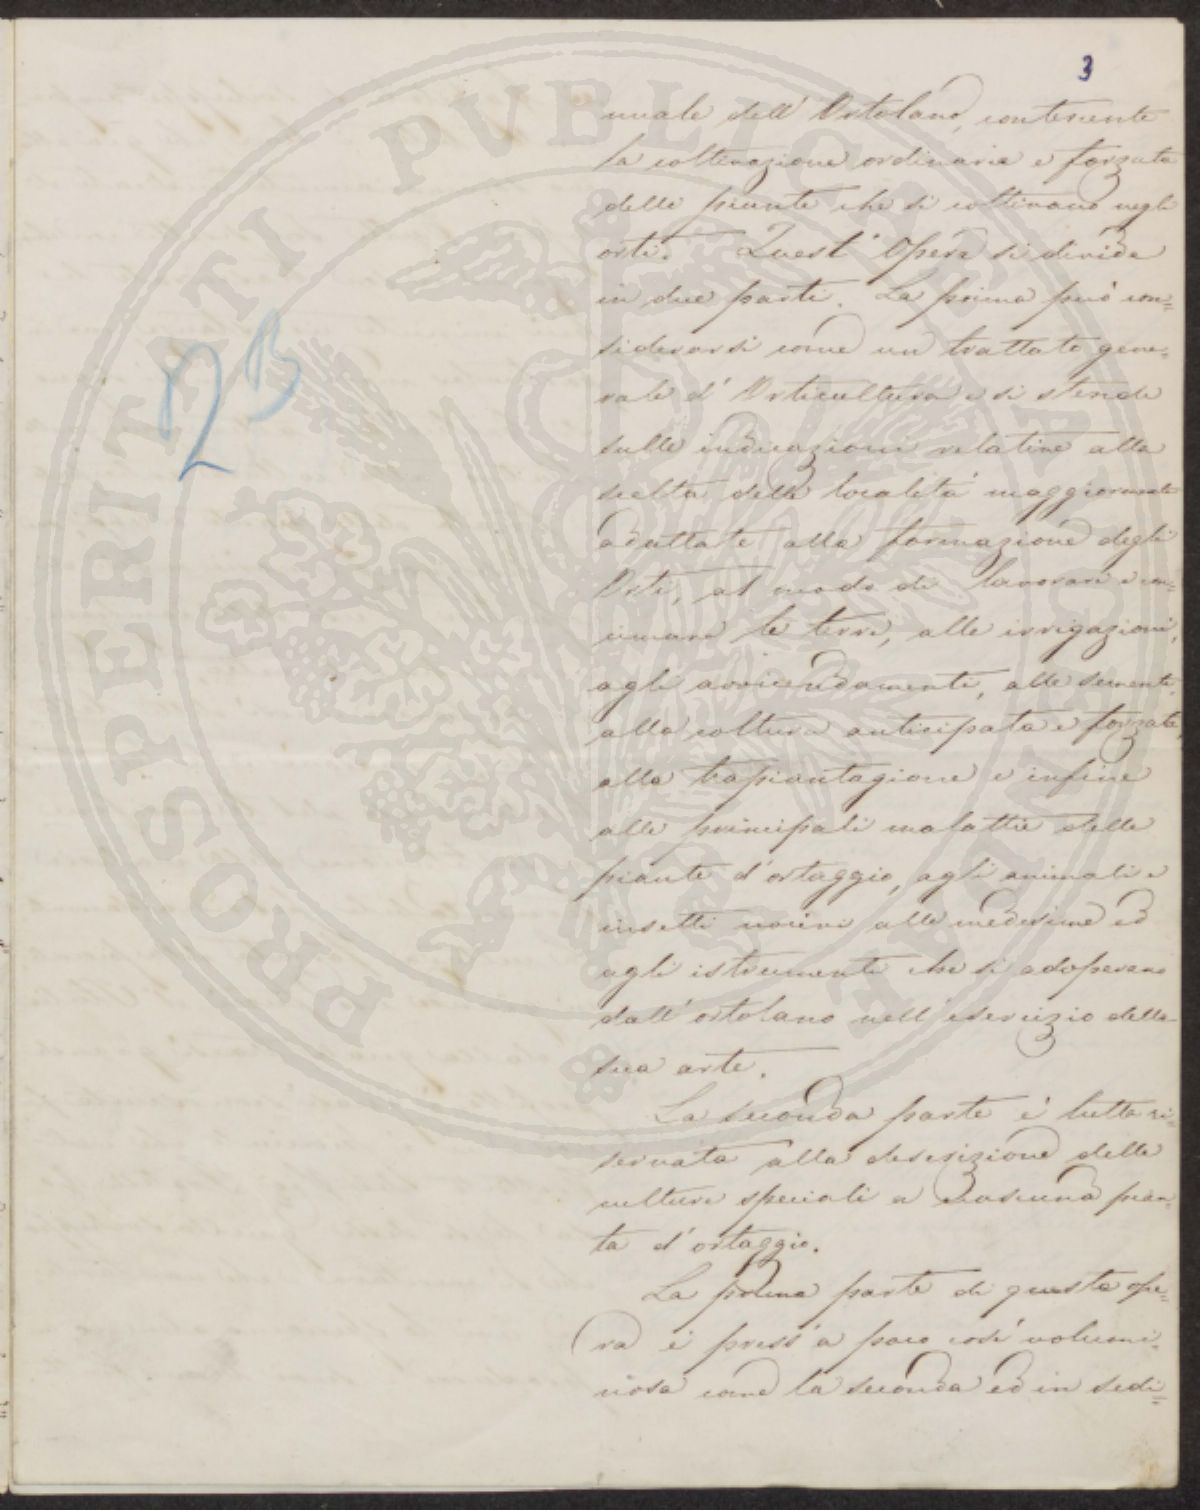 3
nuale dell' Ortolano, contenente
la coltivazione ordinaria e forzata
delle piante che si coltivano negli
orti. Quest' Opera si divide
in due parti. La prima può con=
siderarsi come un trattato gene=
rale d' Orticultura e si stende
sulle indicazioni relative alla
scelta delle località maggiormente
adattate alla formazione degli
Orti, al modo di lavorare e con=
cimare le terre, alle irrigazioni,
agli avvicendamenti, alle sementi,
alla coltura anticipata e forzata,
alla trapiantagione e infine
alle principali malattie delle
piante d'ortaggio, agli animali e
insetti nocivi alle medesime ed
agli istrumenti che si adoperano
dall' ortolano nell' esercizio della
sua arte.
La seconda parte è tutta ri=
servata alla descrizione delle
culture speciali a ciascuna pian=
ta d'ortaggio.
La prima parte di questa ope=
ra è press' a poco così volumi=
nosa come la seconda ed in sedi=
2B
PROSPERITATI PUBLICAE